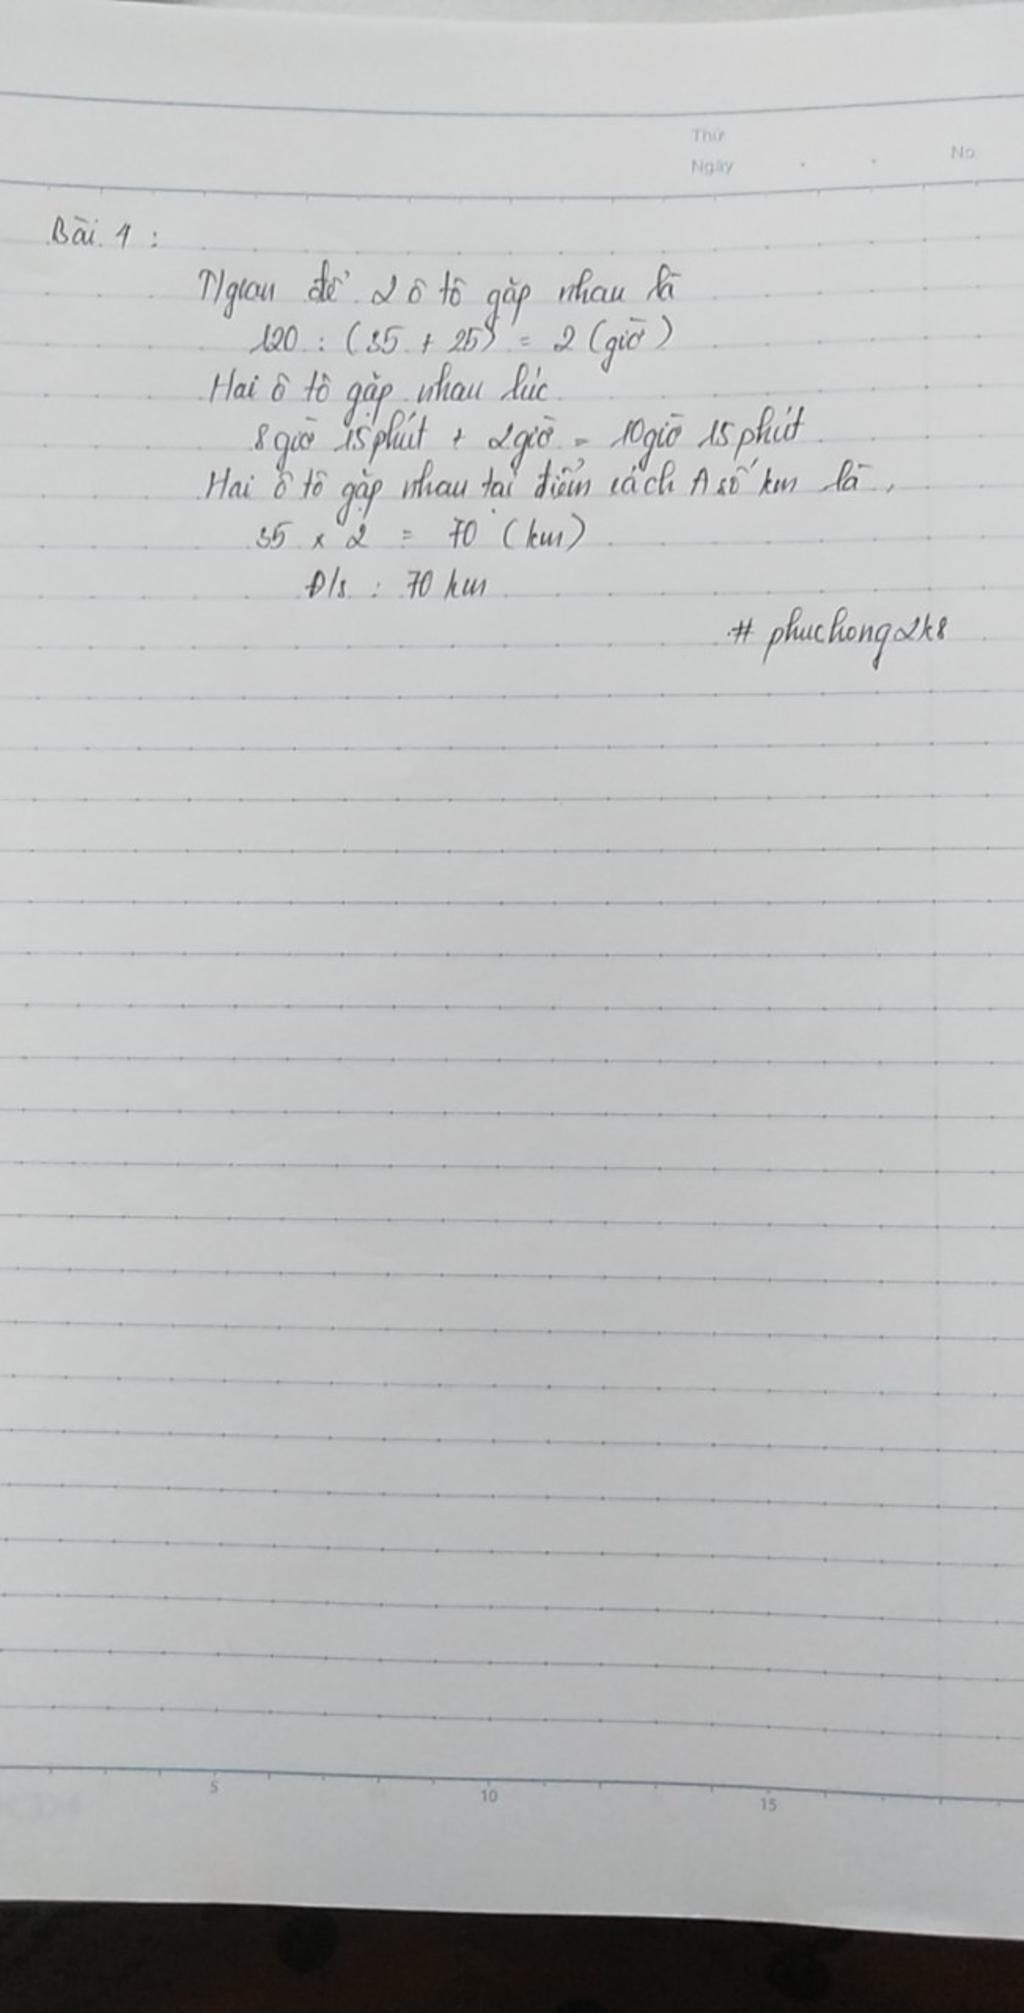 Thứ
Ngày . . No
Bài 1 :
T/gian để 2 ô tô gặp nhau là
120 : (35 + 25) = 2 (giờ)
Hai ô tô gặp nhau lúc
8 giờ 15 phút + 2 giờ = 10 giờ 15 phút
Hai ô tô gặp nhau tại điểm cách A số km là,
35 x 2 = 70 (km)
Đ/s : 70 km
# phuchong2k8
5 10 15